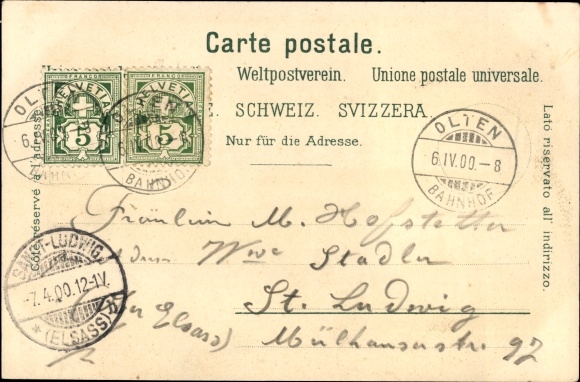 Carte postale.
Weltpostverein. Unione postale universale.
SCHWEIZ. SVIZZERA.
Nur für die Adresse.
Côté réservé à l'adresse.
Lato riservato all' indirizzo.
FRANCO
HELVETIA
5
FRANCO
HELVETIA
5
OLTEN
6.
BAHNHOF
OLTEN
BAHNHOF
OLTEN
6.IV.00.-8
BAHNHOF
SANKT-LUDWIG
-7.4.00.12-1V.
* (ELSASS)
Fräulein M. Hofstetter
Wwe Stadler
St. Ludwig
(Elsass)
Mülhauserstr 97